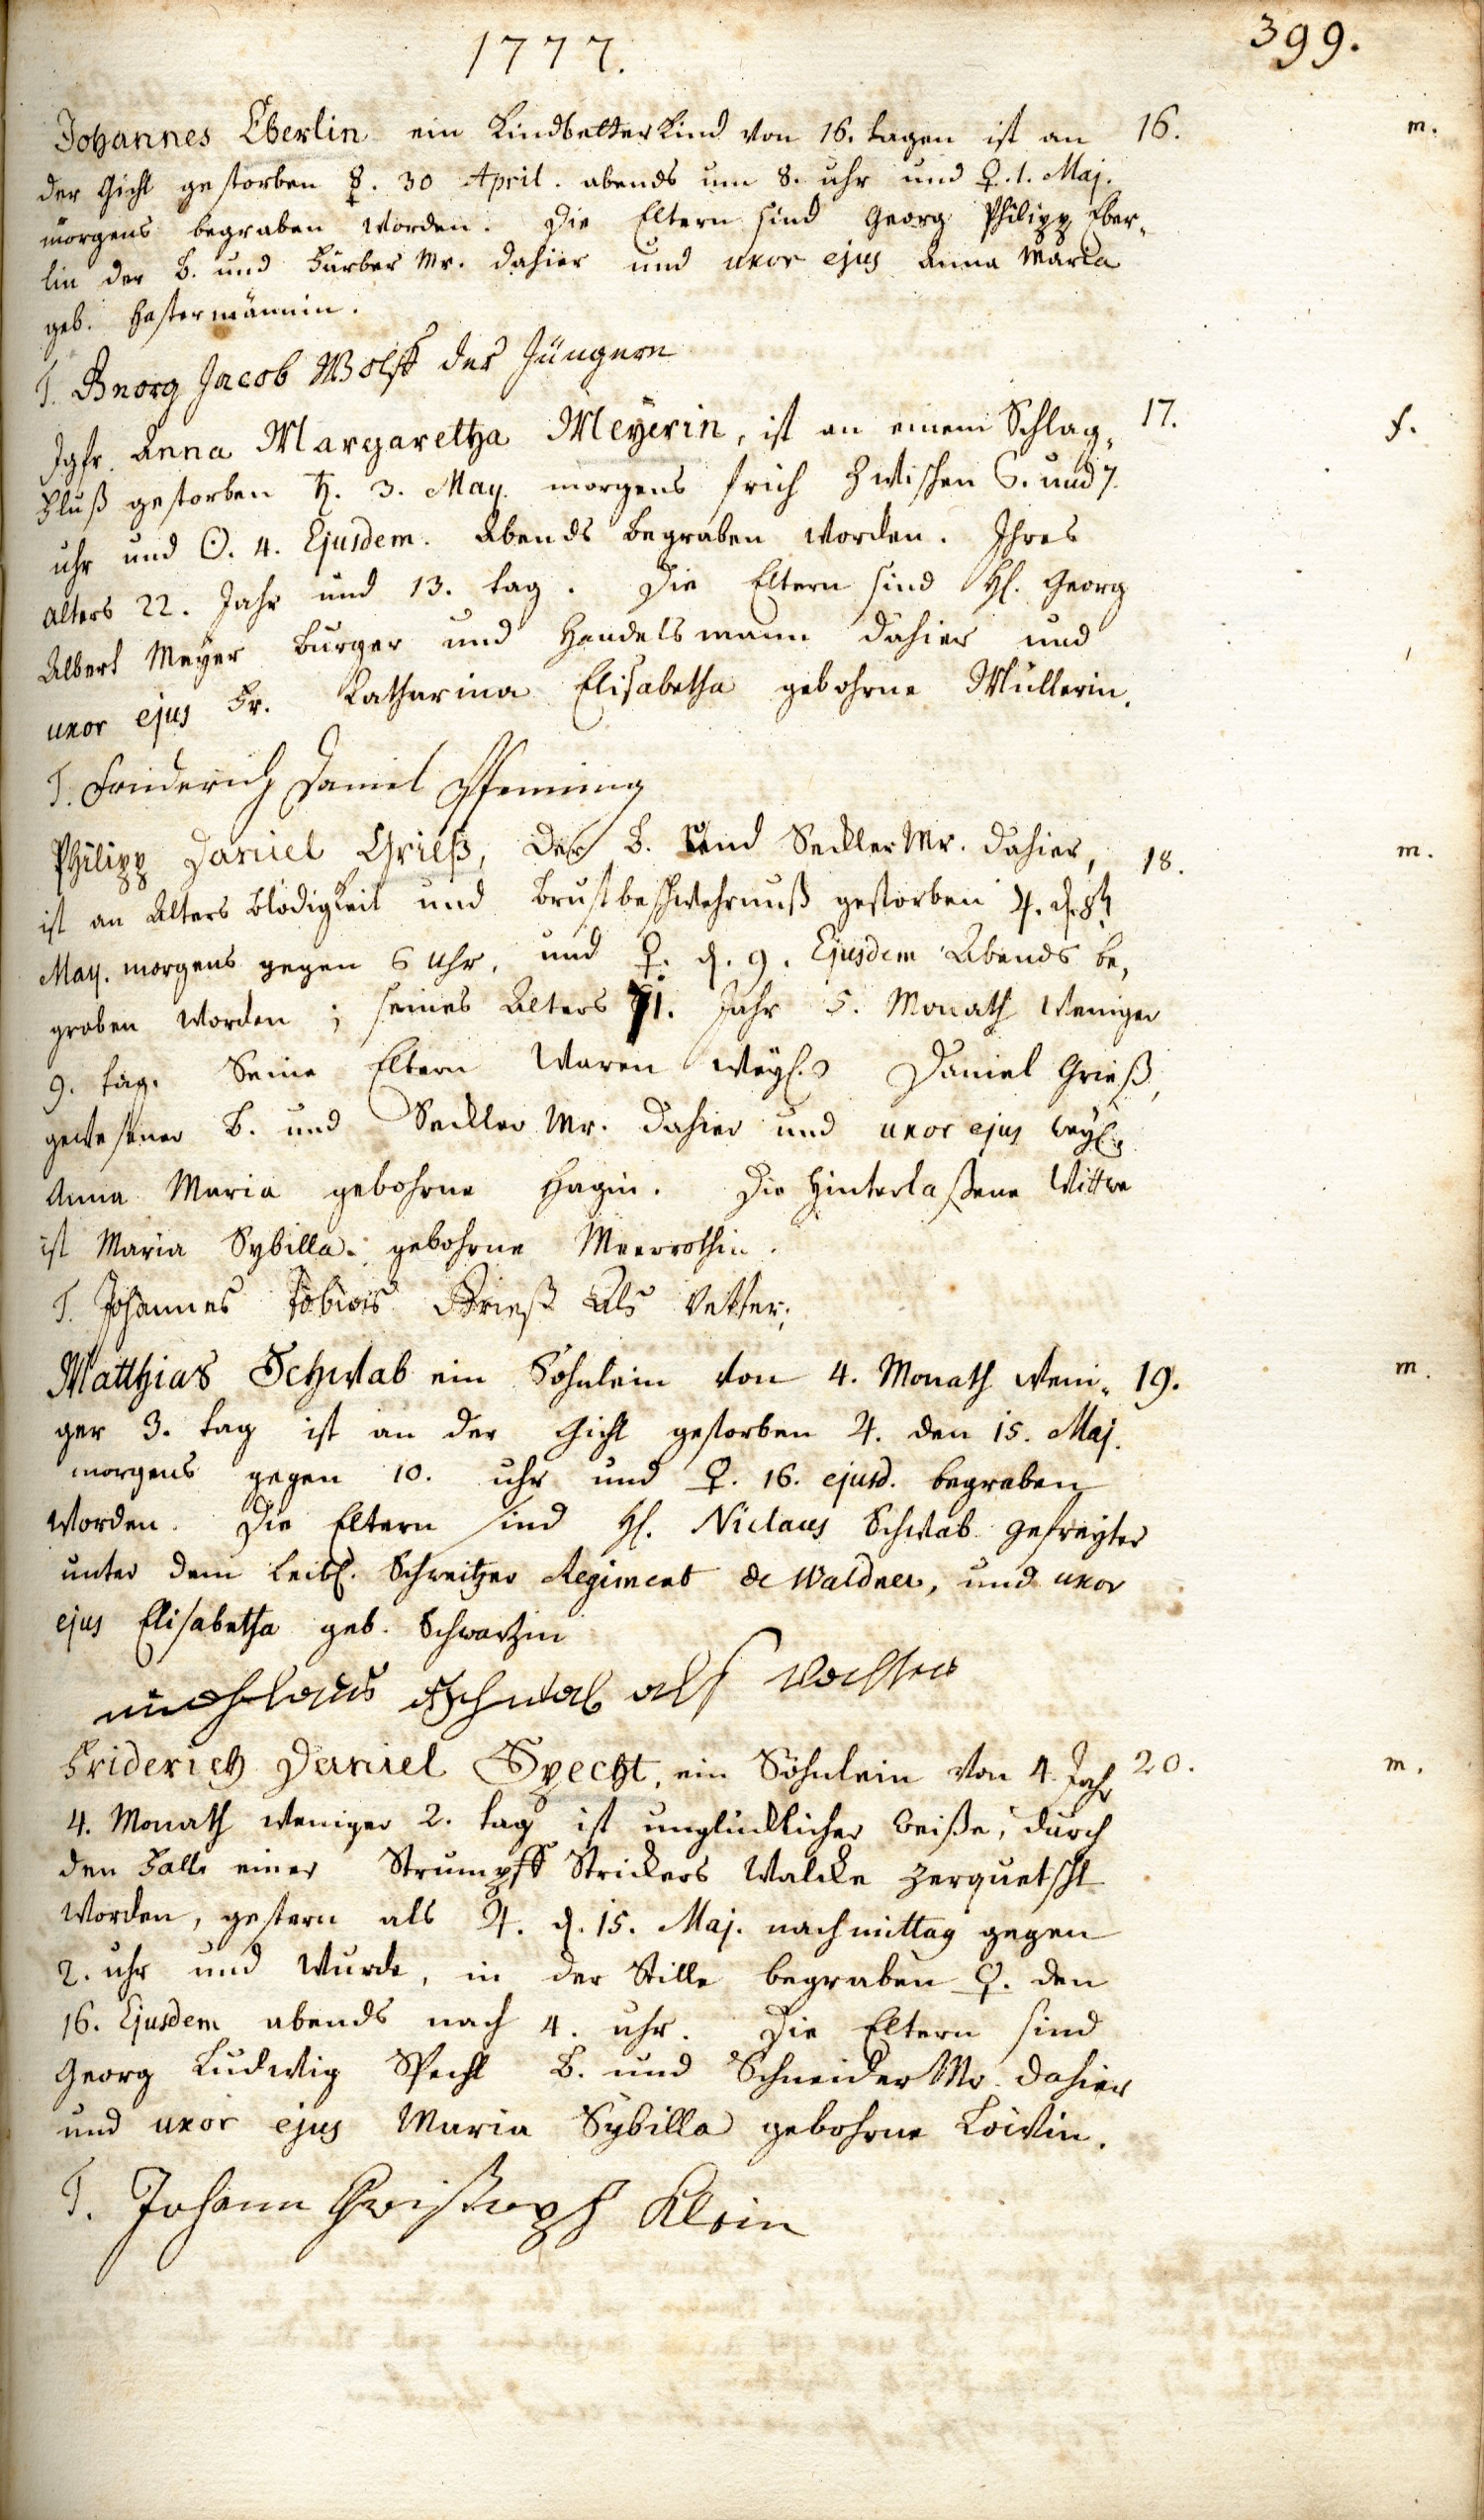 1777.
399.
Johannes Eberlin ein Kindbetterkind von 16. tagen ist an 16. m.
der Gicht gestorben ☿. 30 April. abends um 8. uhr und ♀. 1. Maj.
morgens begraben worden. Die Eltern sind Georg Philipp Eber-
lin der B. und Färber Mr. dahier und uxor ejus Anna Maria
geb. Hastermännin.
T. Georg Jacob Wolff der Jüngere
Jgfr. Anna Margaretha Meyerin, ist an einem Schlag- 17. f.
Fluß gestorben ♄. 3. May. morgens frich zwischen 6. und 7.
uhr und ☉. 4. Ejusdem. Abends begraben worden. Ihres
alters 22. Jahr und 13. tag. Die Eltern sind H. Georg
Albert Meyer burger und Handelsmann dahier und
uxor ejus Fr. Catharina Elisabetha gebohrne Müllerin.
T. Friderich Daniel Pfenning
Philipp Daniel Grieß, der B. und Seckler Mr. dahier, 18. m.
ist an Alters blödigkeit und brustbeschwehrnuß gestorben ♃. d. 8t
May. morgens gegen 6 uhr, und ♀. d. 9. Ejusdem Abends be-
graben worden; seines Alters 71. Jahr 5. Monath weniger
9. tag. Seine Eltern waren weyl. Daniel Grieß,
gewesener B. und Seckler Mr. dahier und uxor ejus weyl.
Anna Maria gebohrne Hagin. Die Hinterlaßene Wittwe
ist Maria Sybilla gebohrne Meerrothin.
T. Johannes Tobias Grieß als Vetter,
Matthias Schwab ein Söhnlein von 4. Monath weni- 19. m.
ger 3. tag ist an der Gicht gestorben ♃. den 15. Maj.
morgens gegen 10. uhr und ♀. 16. ejusd. begraben
worden. Die Eltern sind H. Niclaus Schwab gefreyter
unter dem Leibl. Schweitzer Regiment de Waldner, und uxor
ejus Elisabetha geb. Schwartzin
nichlaus schwab alß Vatter
Friderich Daniel Specht, ein Söhnlein von 4. Jahr 20. m.
4. Monath weniger 2. tag ist unglücklicher weiße, durch
den Falle einer Strumpff Strickers Walcke zerquetscht
worden, gestern als ♃. d. 15. Maj. nachmittag gegen
2. uhr und wurde, in der Stille begraben ♀. den
16. Ejusdem abends nach 4. uhr. Die Eltern sind
Georg Ludwig Specht B. und Schneider Mr. dahier
und uxor ejus Maria Sybilla gebohrne Löwin.
T. Johann Christoph Klein